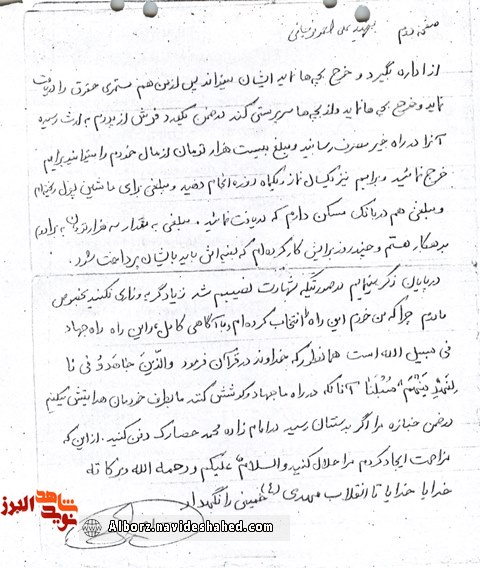 صفحه دوم شهید علی احمد
از اداره بگیرد و خرج بچه ها نماید ایشان میتواند پس از من هم مستمری حقوق را دریافت
نماید و خرج بچه ها نماید و از بچه ها سرپرستی کند در ضمن یکعدد فرش از پدرم به ارث رسیده
آنرا در راه خیر مصرف رسانید و مبلغ بیست هزار تومان از مال خودم را میتوانید برایم
خرج نمائید و برایم نیز یکسال نماز و یکماه روزه انجام دهید و مبلغی برای ماشین
و مبلغی هم در بانک مسکن دارم که دریافت نمائید. مبلغی به مقدار سه هزار تومان به برادرم
بدهکار هستم و چند روز برایش کار کرده ام که بقیه اش باید بایشان پرداخت شود.
در پایان ذکر مینمایم در صورتیکه شهادت نصیبم شد زیاد گریه و زاری نکنید بخصوص
مادرم چرا که من خودم این راه را انتخاب کرده ام و با آگاهی کامل، و این راه راه جهاد
فی سبیل الله است همانطور که خداوند در قرآن فرمود والَّذینَ جاهَدوُ فی نا
لنَهْدِیَنَّهُمْ سُبُلَنا آنانکه در راه ما جهاد و کوشش کنند ما بطرف خودمان هدایتش میکنیم
در ضمن جنازه مرا اگر بدستتان رسید در امام زاده محمد حصارک دفن کنید. از این که
مزاحمت ایجاد کردم مرا حلال کنید والسلام علیکم و رحمه الله و برکاته
خدایا خدایا تا انقلاب مهدی (ع) خمینی را نگهدار
نوید شاهد البرز
Alborz.navideshahed.com